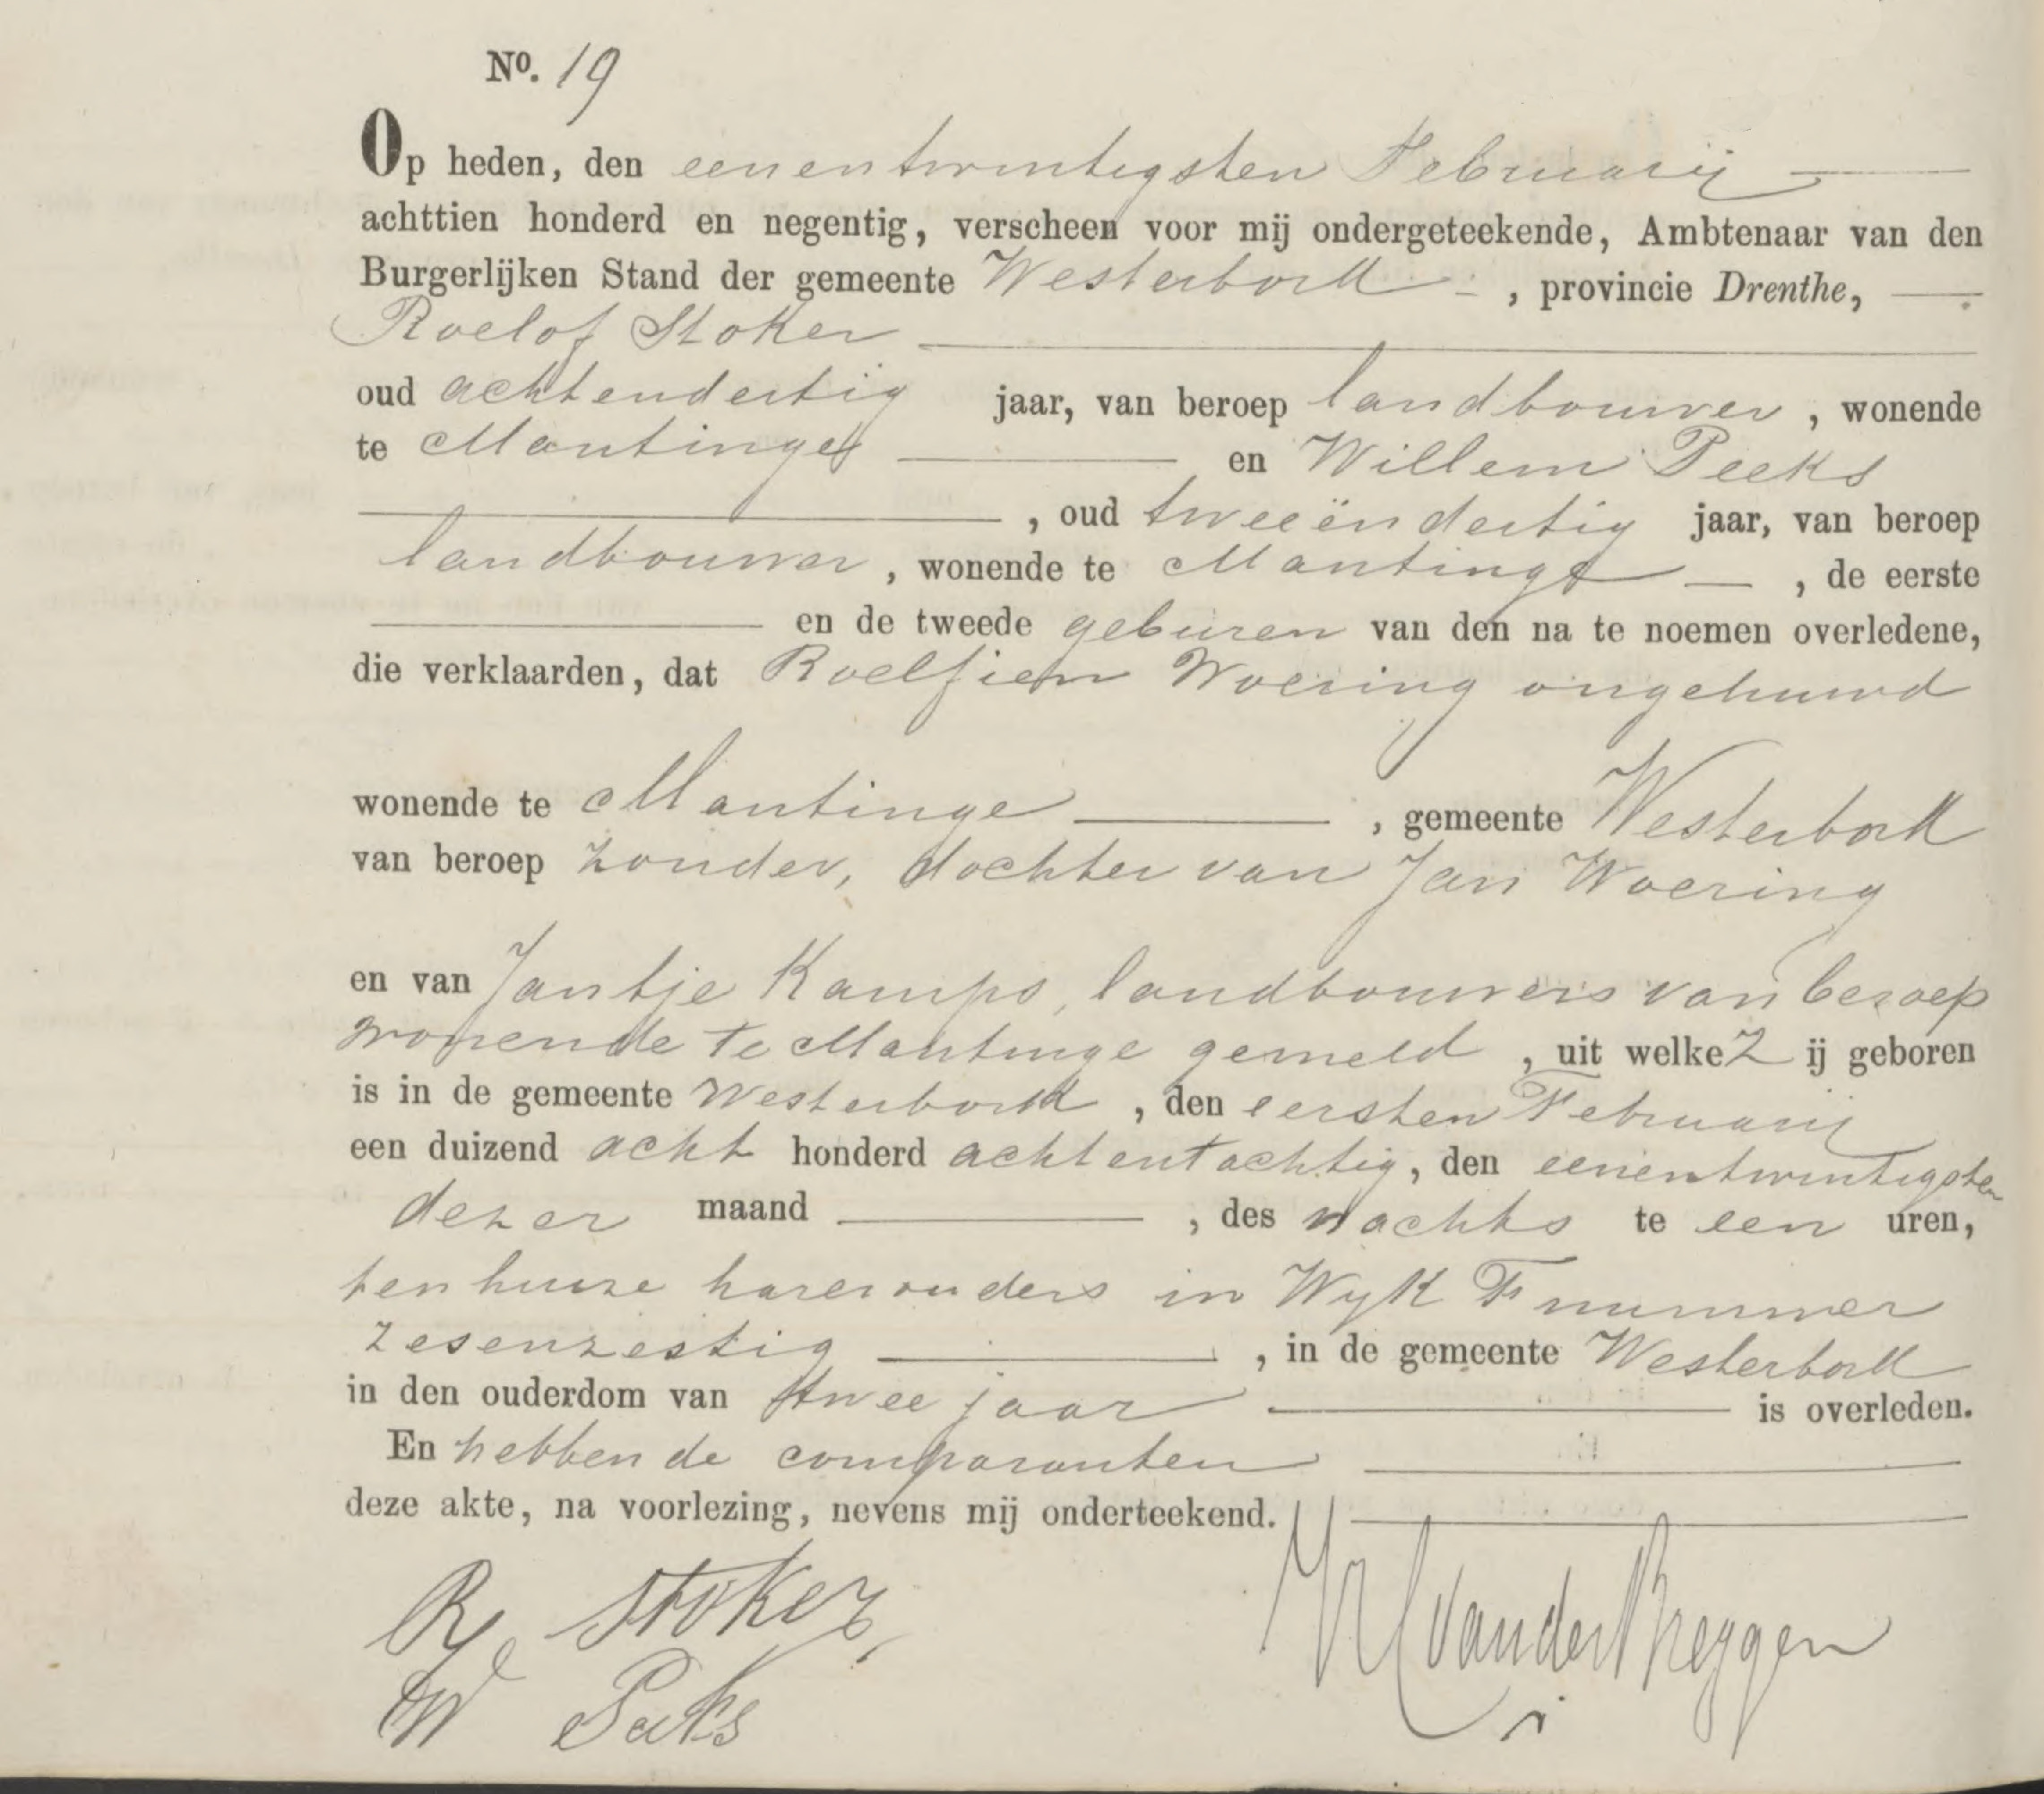 No. 19
Op heden, den eenentwintigsten Februarij
achttien honderd en negentig, verscheen voor mij ondergeteekende, Ambtenaar van den
Burgerlijken Stand der gemeente Westerbork, provincie Drenthe,
Roelof Stoker
oud achtendertig jaar, van beroep landbouwer, wonende
te Mantinge en Willem Peeks
, oud tweeëndertig jaar, van beroep
landbouwer, wonende te Mantinge, de eerste
en de tweede geburen van den na te noemen overledene,
die verklaarden, dat Roelfien Woering ongehuwd
wonende te Mantinge, gemeente Westerbork
van beroep zonder, dochter van Jan Woering
en van Jantje Kamps, landbouwers van beroep
wonende te Mantinge gemeld, uit welke Zij geboren
is in de gemeente Westerbork, den eersten Februarij
een duizend acht honderd achtentachtig, den eenentwintigsten
dezer maand, des nachts te een uren,
ten huize harer ouders in Wyk F nummer
zesenzestig, in de gemeente Westerbork
in den ouderdom van twee jaar is overleden.
En hebben de comparanten
deze akte, na voorlezing, nevens mij onderteekend.
R. Stoker
W Peeks
van der Breggen